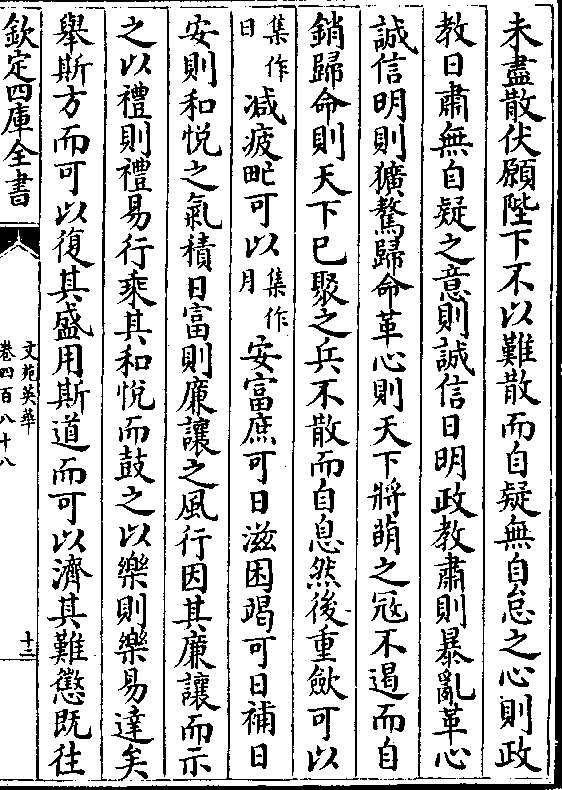 未盡散伏願陛下不以難散而自疑無自怠之心則政
教日肅無自疑之意則誠信日明政教肅則暴亂革心
誠信明則獷驁歸命革心則天下將萌之冦不遏而自
銷歸命則天下已聚之兵不散而自息然後重斂可以
集作日減疲甿可以集作月安富庶可日滋困竭可日補日
安則和悦之氣積日富則廉讓之風行因其廉讓而示
之以禮則禮易行乘其和悦而鼓之以樂則樂易達矣
舉斯方而可以復其盛用斯道而可以濟其難懲既往
欽定四庫全書
文苑英華
卷四百八十八
十三